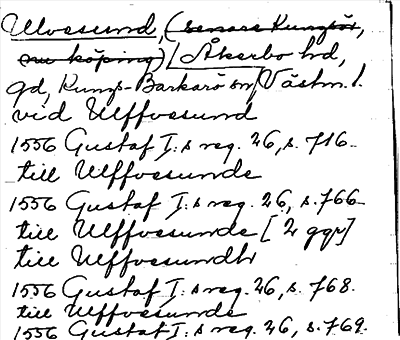 Ulvesund, (senare Kungsör,
nu köping) / Åkerbo hd,
gd, Kungs-Barkarö sn, Västm. l.
vid Ulffvesund
1556 Gustaf I:s reg. 26, s. 716.
till Ulffvesunde
1556 Gustaf I:s reg. 26, s. 766
till Ulffvesunde [2 ggr]
till Ulffvesundh
1556 Gustaf I:s reg. 26, s. 768.
till Ulffvesunde
1556 Gustaf I:s reg. 26, s. 769.